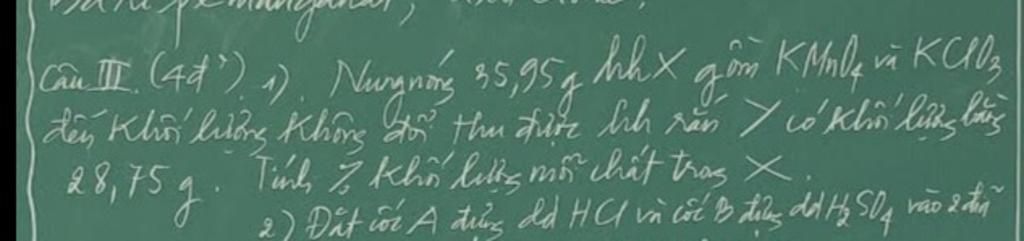 Câu III. (4đ') 1) Nung nóng 35,95g hh X gồm KMnO4 và KClO3
đến khối lượng không đổi thu được hh rắn Y có khối lượng bằng
28,75 g. Tính % khối lượng mỗi chất trong X.
2) Đặt cốc A đựng dd HCl và cốc B đựng dd H2SO4 vào 2 đĩa